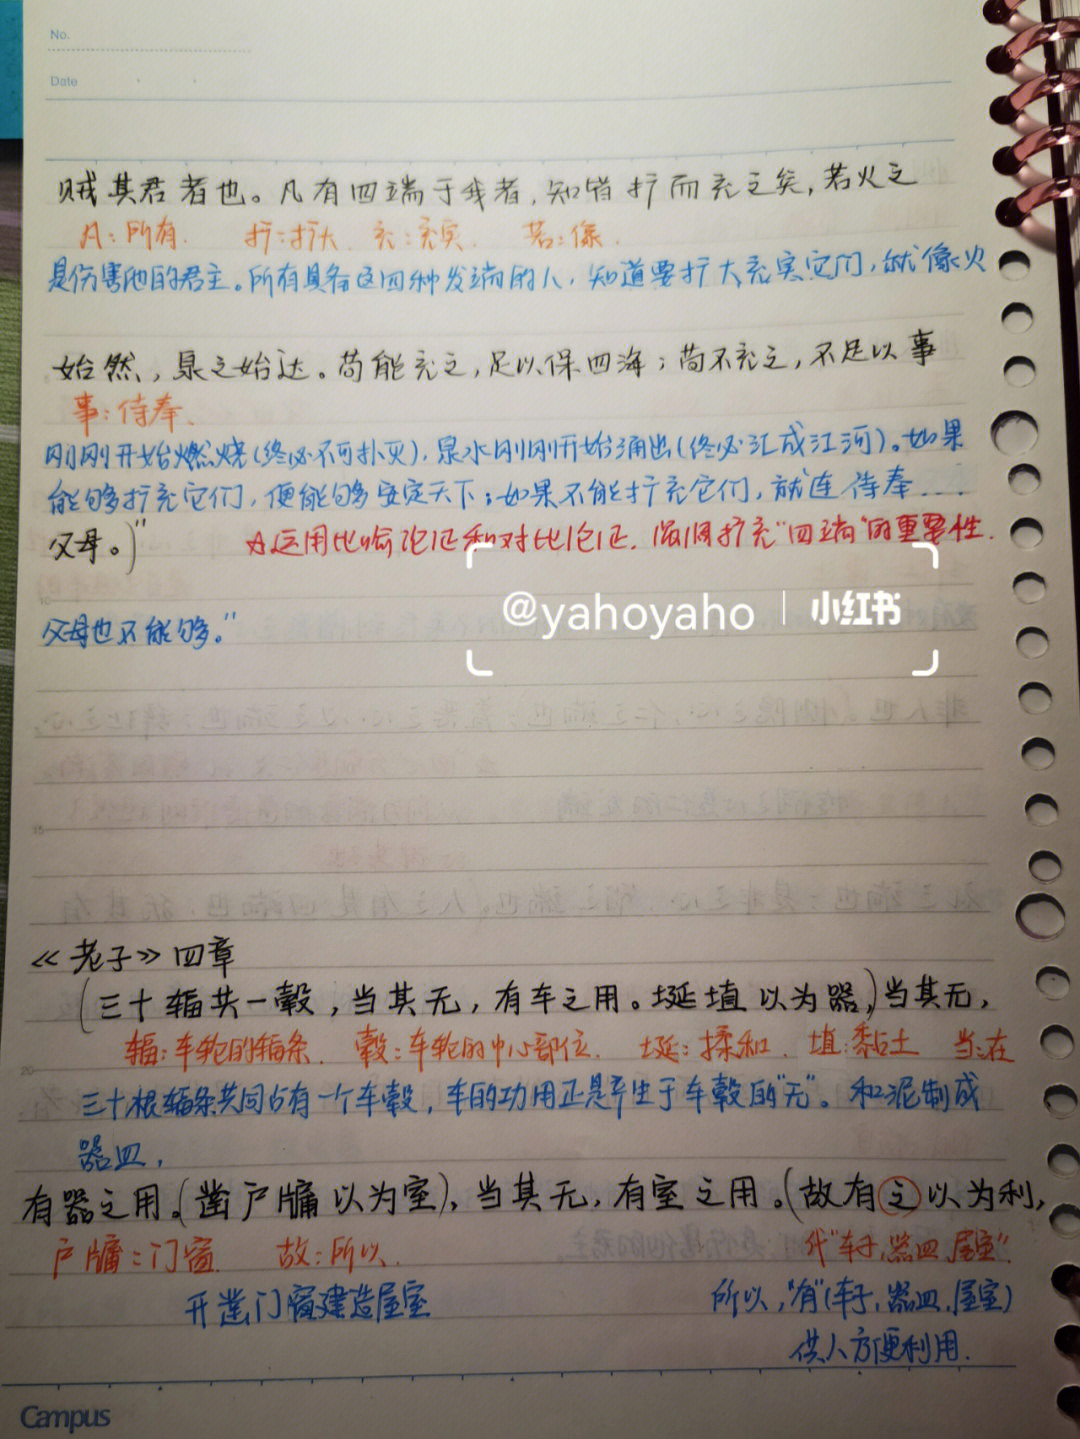 No.
Date
贼其君者也。凡有四端于我者,知皆扩而充之矣,若火之
凡:所有. 扩:扩大. 充:充实. 若:像.
是伤害他的君主。所有具备这四种发端的人,知道要扩大充实它们,就像火
始然,泉之始达。苟能充之,足以保四海;苟不充之,不足以事
事:侍奉.
刚刚开始燃烧(终必不可扑灭),泉水刚刚开始涌出(终必汇成江河)。如果
能够扩充它们,便能够安定天下;如果不能扩充它们,就连侍奉....
父母。)" 运用比喻论证和对比论证.强调扩充"四端"的重要性.
@yahoyaho | 小红书
父母也不能够。"
15
《老子》四章
(三十辐共一毂,当其无,有车之用。埏埴以为器,)当其无,
辐:车轮的辐条. 毂:车轮的中心部位. 埏:揉和. 埴:黏土 当:在
20
三十根辐条共同占有一个车毂,车的功用正是产生于车毂的"无"。和泥制成
器皿,
有器之用。(凿户牖以为室),当其无,有室之用。(故有之以为利,
户牖:门窗. 故:所以. 代"车子,器皿,屋室"
开凿门窗建造屋室 所以,"有"(车子,器皿,屋室)
供人方便利用.
Campus